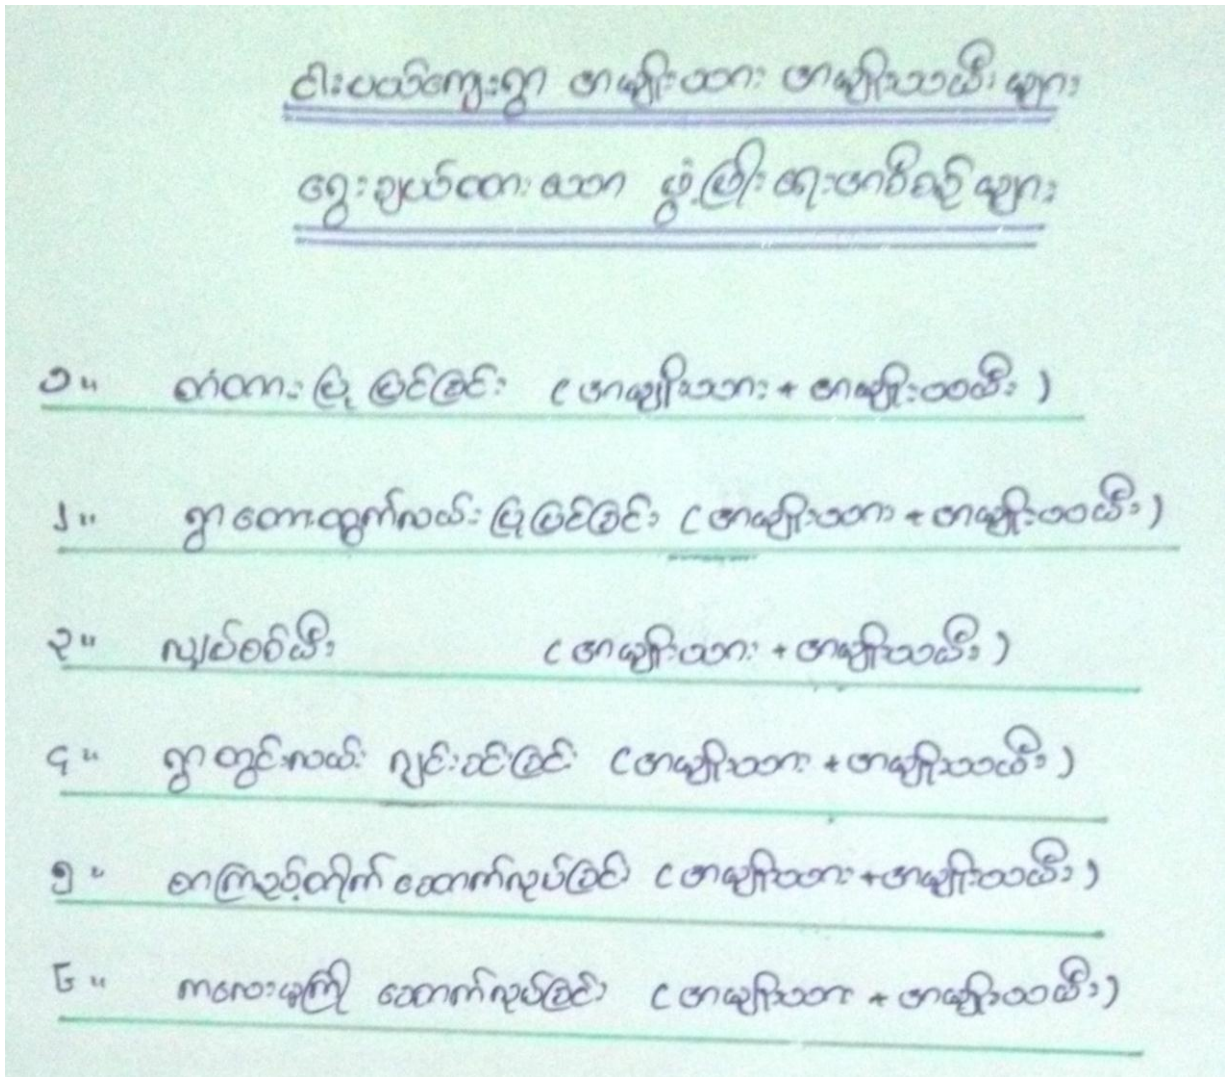 ငါးပယ်ကျေးရွာ အမျိုးသား အမျိုးသမီး များ
ရွေးချယ်ထားသော ဖွံ့ဖြိုးရေးအစီစဉ်များ
၁။ တံတား ပြုပြင်ခြင်း (အမျိုးသား + အမျိုးသမီး)
၂။ ရွာတောထွက်လမ်း ပြုပြင်ခြင်း (အမျိုးသား + အမျိုးသမီး)
၃။ လျှပ်စစ်မီး (အမျိုးသား + အမျိုးသမီး)
၄။ ရွာတွင်းလမ်း ကွင်းခင်းခြင်း (အမျိုးသား + အမျိုးသမီး)
၅။ စာကြည့်တိုက် ဆောက်လုပ်ခြင်း (အမျိုးသား + အမျိုးသမီး)
၆။ ကလေးမူကြို ဆောက်လုပ်ခြင်း (အမျိုးသား + အမျိုးသမီး)